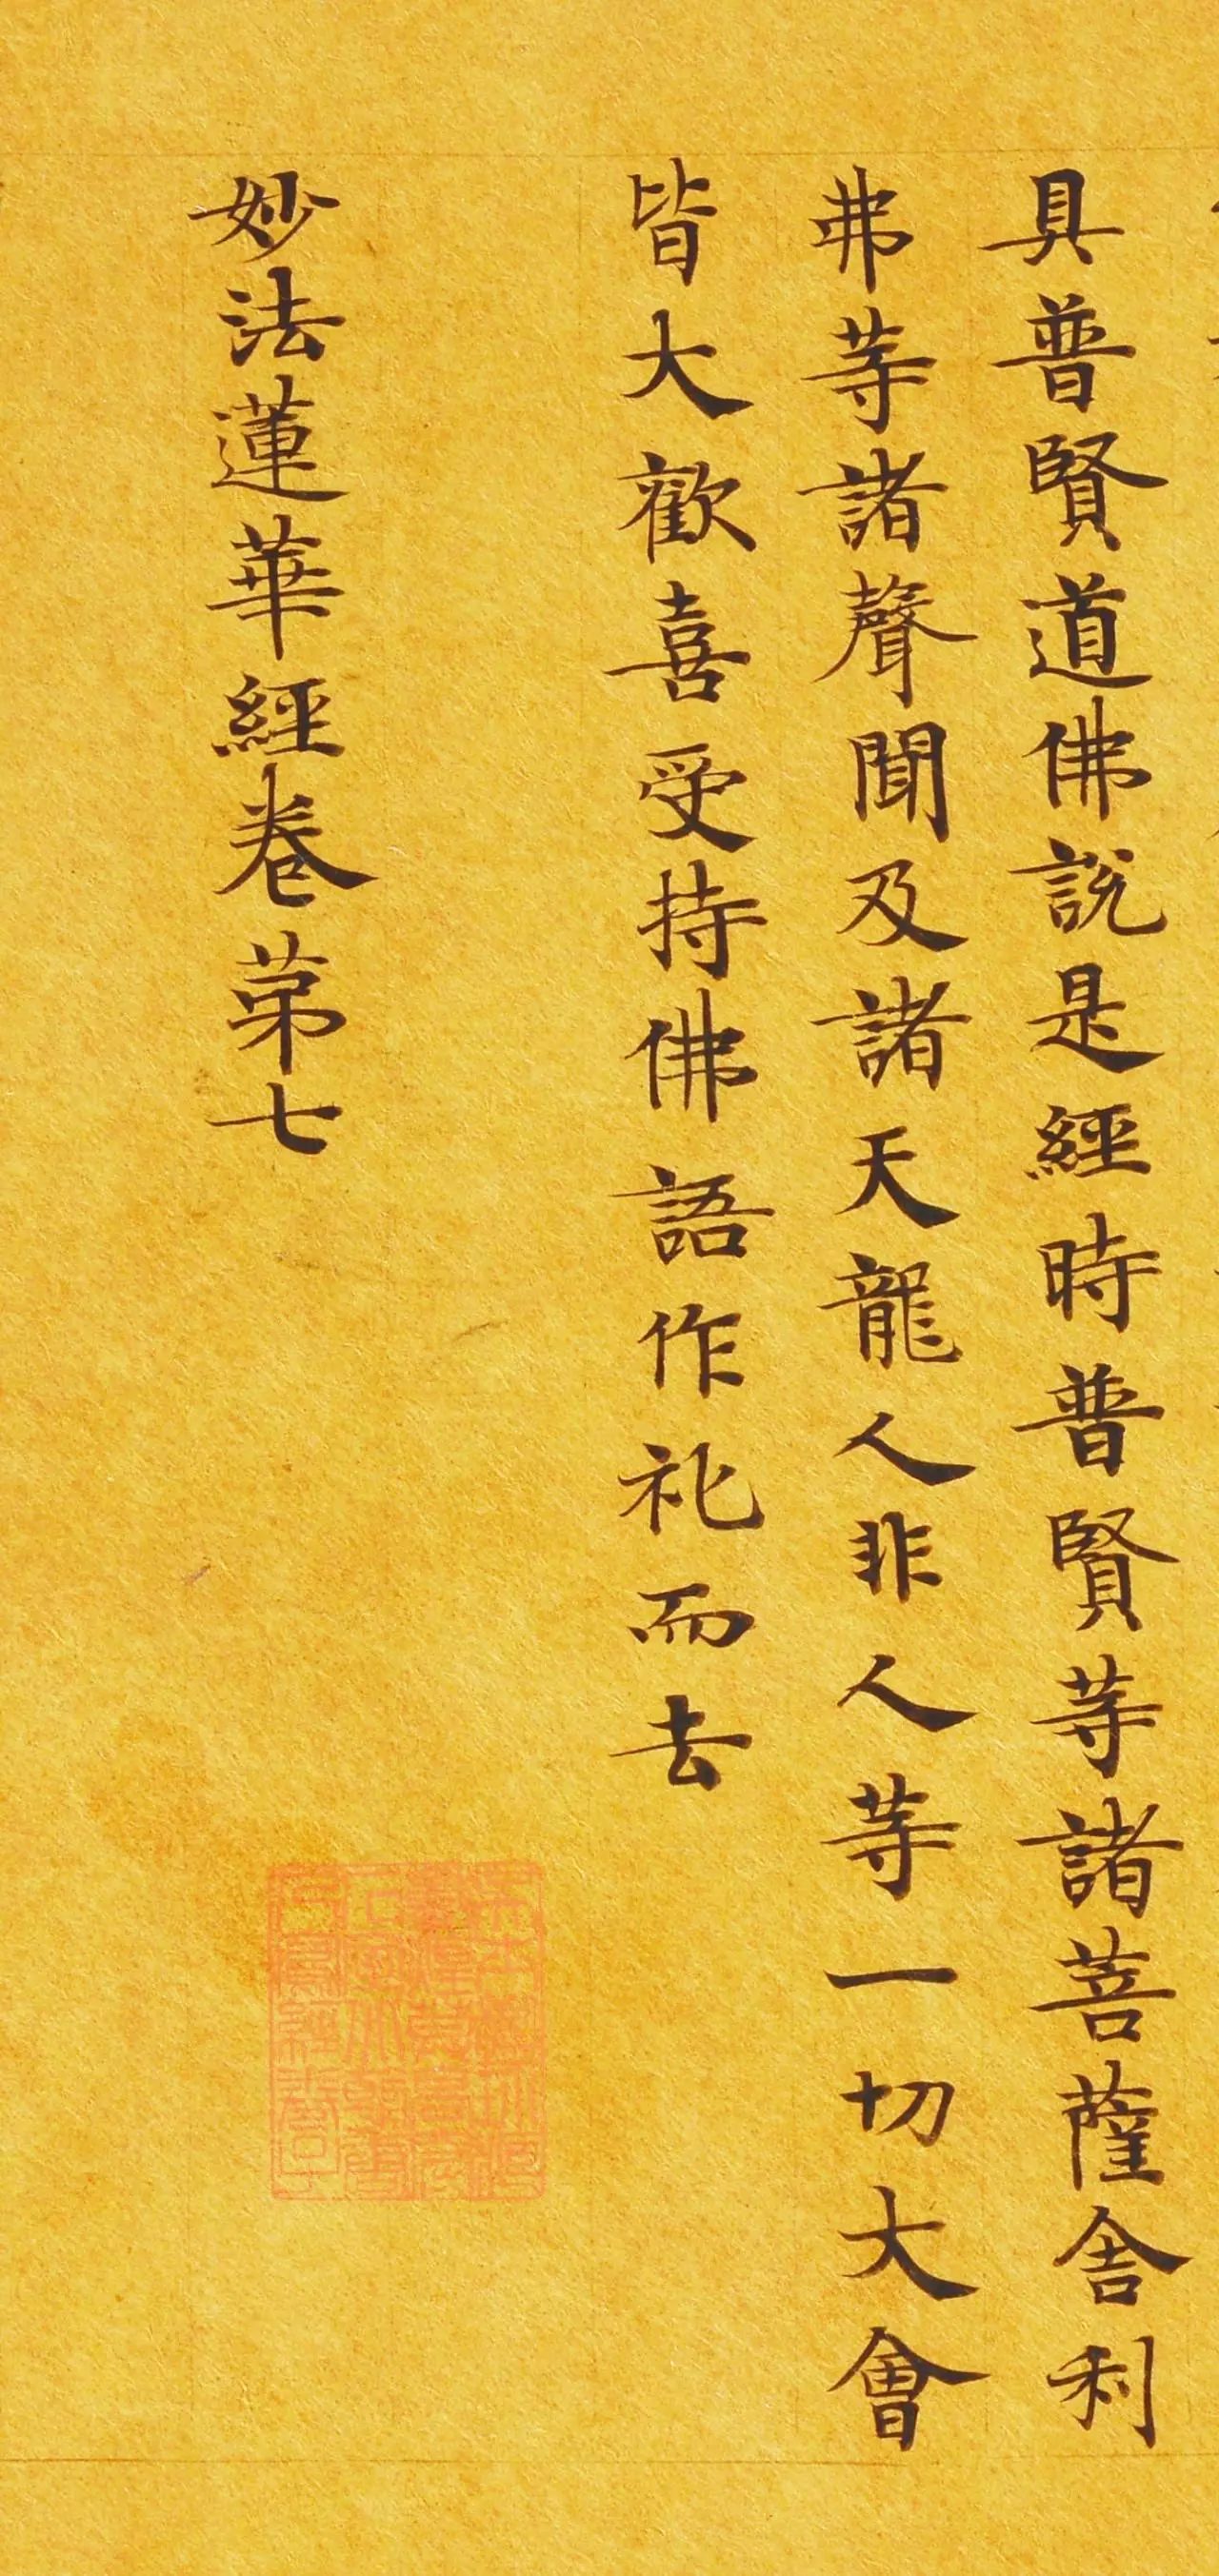 具普賢道佛說是經時普賢等諸菩薩舍利
弗等諸聲聞及諸天龍人非人等一切大會
皆大歡喜受持佛語作礼而去
妙法蓮華經卷第七